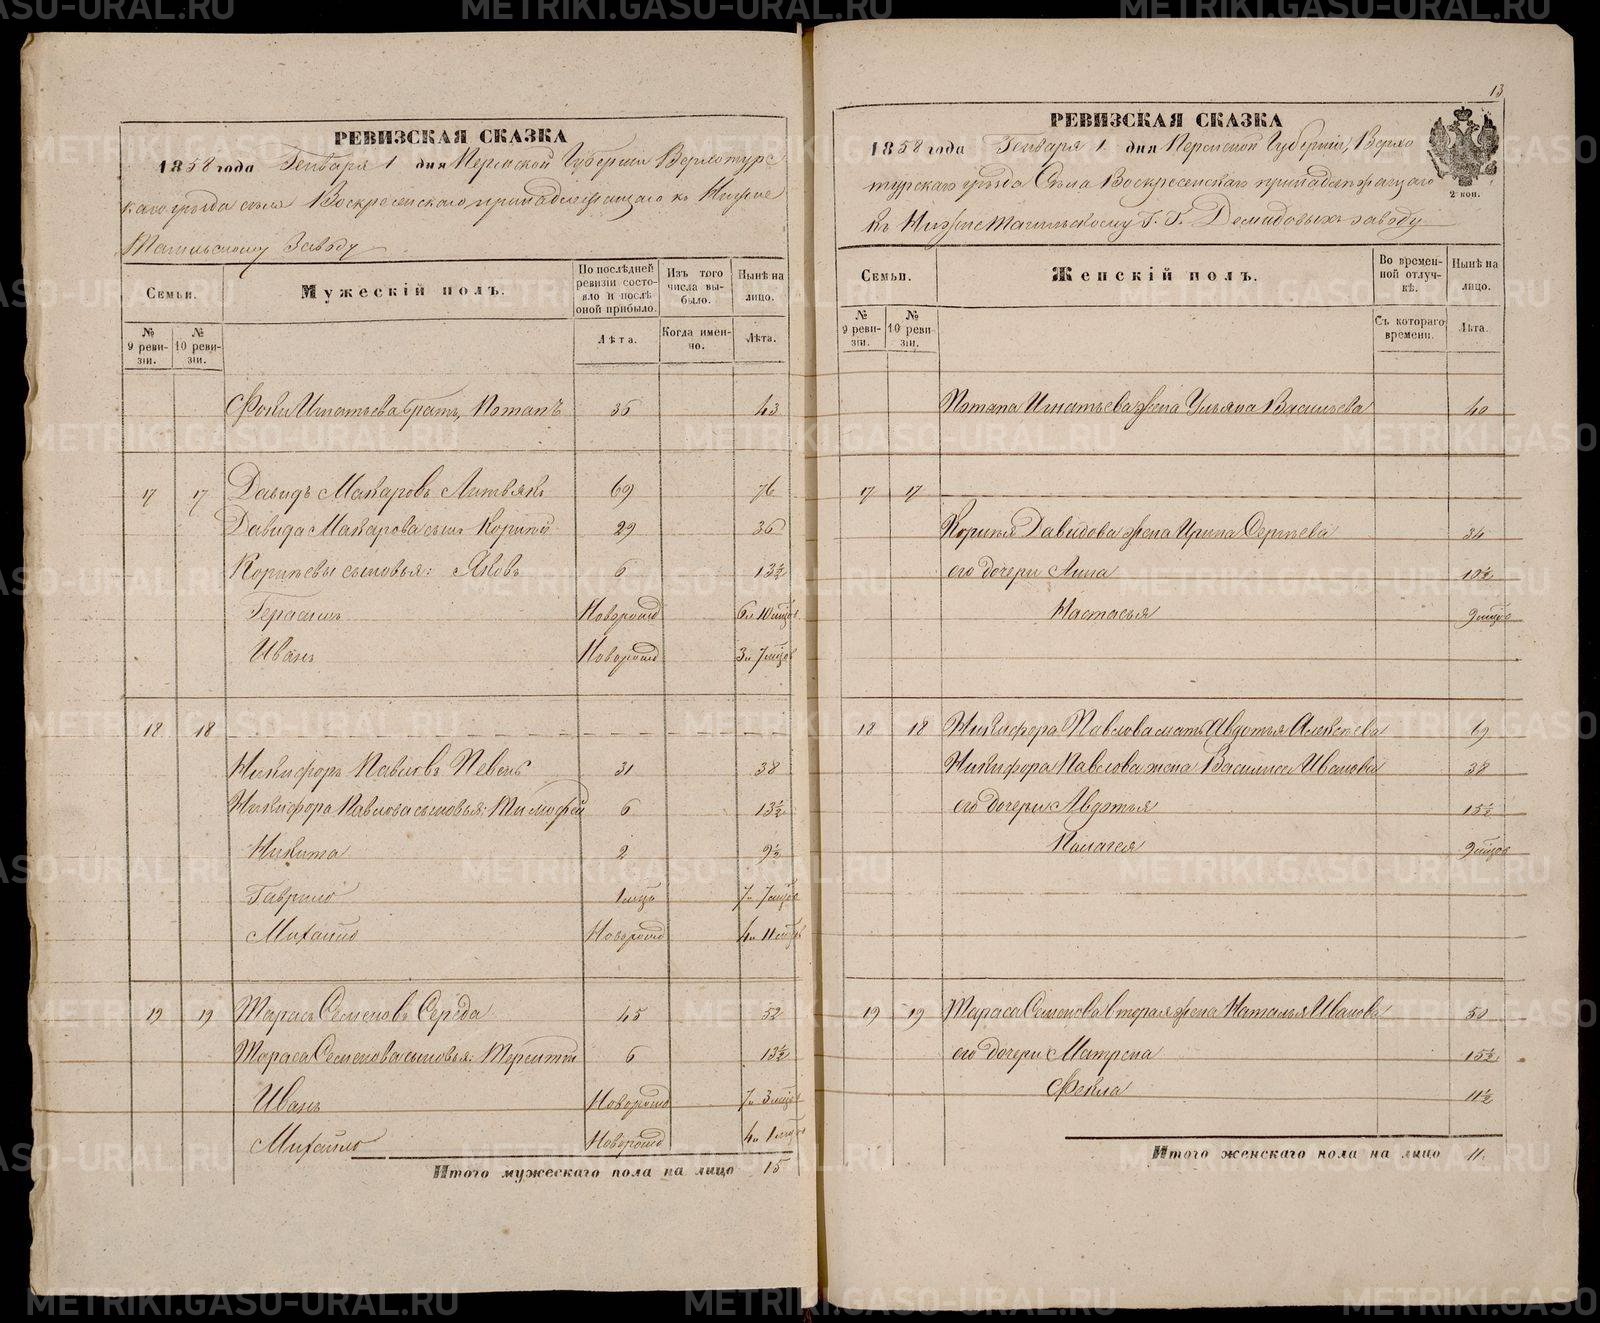 РЕВИЗСКАЯ СКАЗКА
1858 года Генваря 1 дня Пермской Губернии Верхотурс
каго уѣзда села Воскресенскаго принадлежащаго къ Нижне
Тагильскому Заводу
Семьи. Мужескій полъ. По послѣдней ревизіи состояло и послѣ оной прибыло. Изъ того числа выбыло. Нынѣ на лицо.
№ 9 ревизіи. № 10 ревизіи. Лѣта. Когда именно. Лѣта.
Фоки Игнатьева братъ, Потапъ 36 43
17 17 Давидъ Макаровъ Литвякъ 69 76
Давида Макарова сынъ Корнѣй 29 36
Корнѣевы сыновья: Яковъ 6 13½
Герасимъ Новорожд 6 и 10 мѣцов
Иванъ Новорожд 3 и 7 мѣцов
18 18
Никифоръ Павловъ Певень 31 38
Никифора Павлова сыновья: Тимофей 6 13½
Никита 2 9½
Гаврило 1 мцъ 7 и 7 мѣцов
Михайло Новорожд 4 и 11 мѣцов
19 19 Тарасъ Семеновъ Середа 45 52
Тараса Семенова сыновья: Терентий 6 13½
Иванъ Новорожд 7 и 3 мѣцов
Михайло Новорожд 4 и 1 мѣцов
Итого мужескаго пола на лицо 15
13
РЕВИЗСКАЯ СКАЗКА
1858 года Генваря 1 дня Пермской Губерніи, Верхо
турскаго уѣзда Села Воскресенскаго принадлежащаго
къ Нижнетагильскому Г. Г. Демидовыхъ заводу
2 коп.
Семьи. Женскій полъ. Во временной отлучкѣ. Нынѣ на лицо.
№ 9 ревизіи. № 10 ревизіи. Съ котораго времени. Лѣта.
Потапа Игнатьева жена Ульяна Васильева 40
17 17
Корнѣя Давидова жена Ирина Сергѣева 34
его дочери Анна 10½
Настасья 9 мѣцов
18 18 Никифора Павлова мать Авдотья Алексѣева 69
Никифора Павлова жена Василиса Иванова 38
его дочери Авдотья 15½
Пелагея 9 мѣцов
19 19 Тараса Семенова вторая жена Наталья Иванова 50
его дочери Матрена 15½
Фекла 11½
Итого женскаго пола на лицо 11.
METRIKI.GASO-URAL.RU